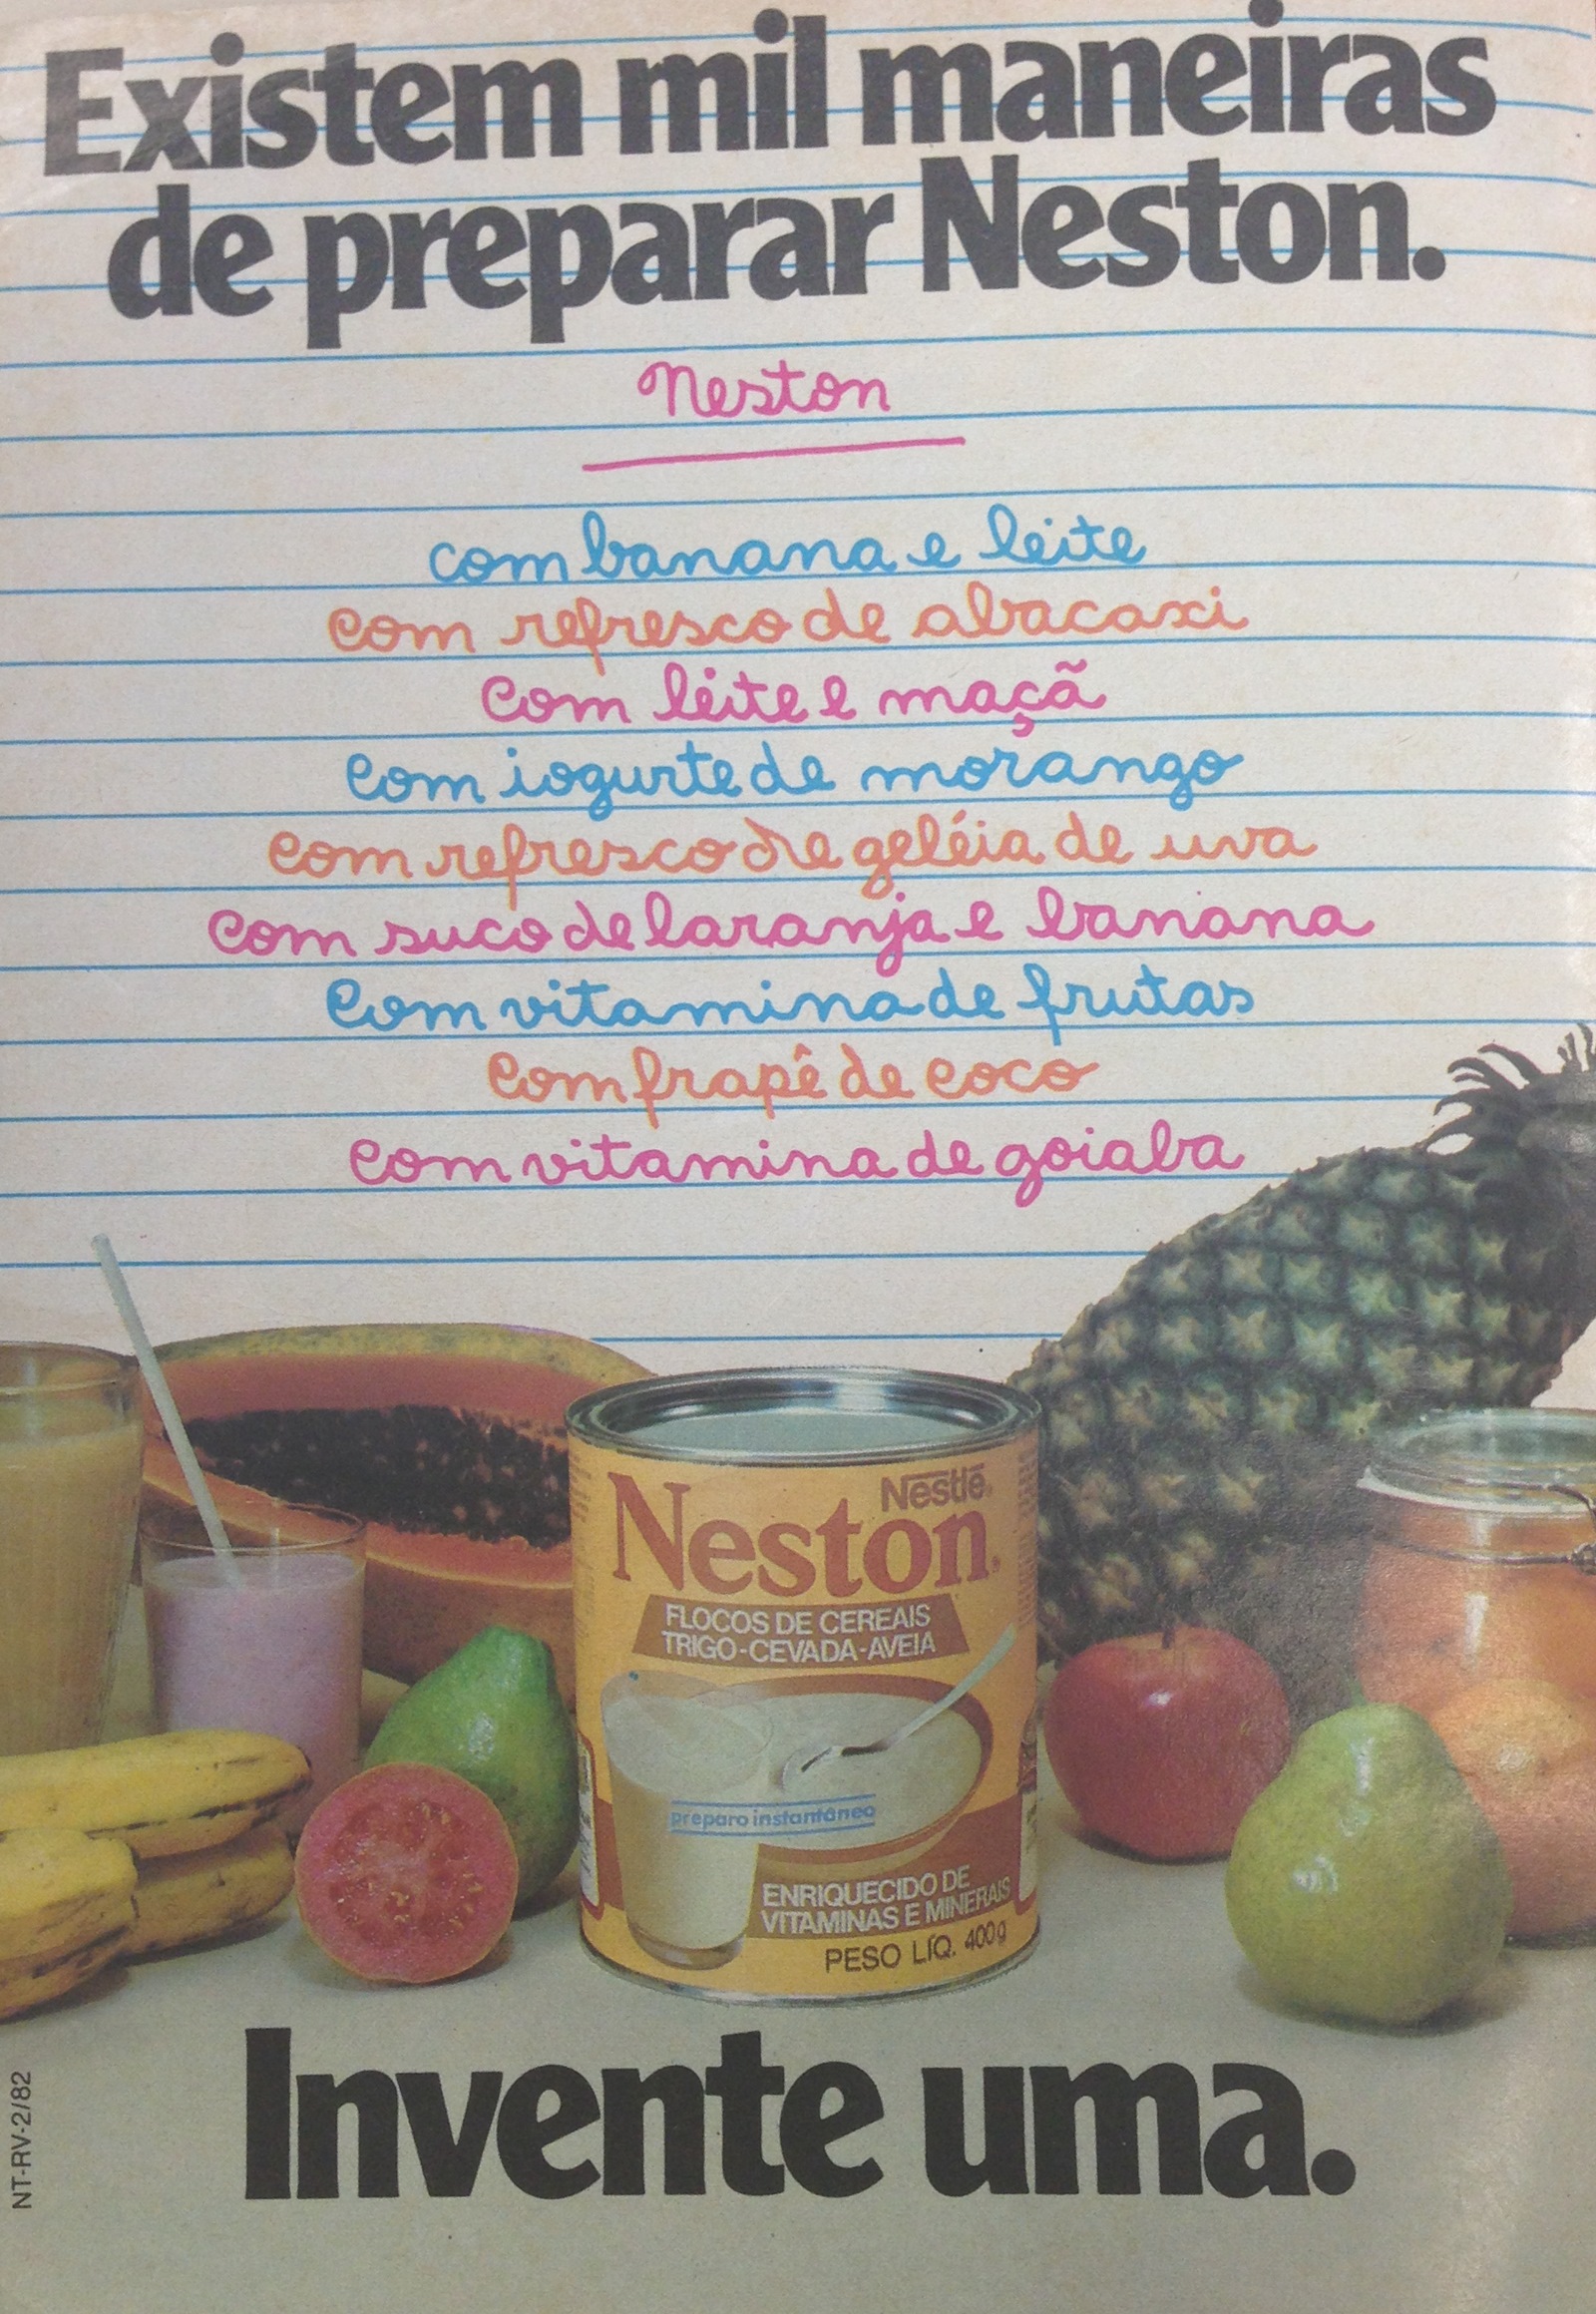 Existem mil maneiras
de preparar Neston.
Neston
com banana e leite
com refresco de abacaxi
com leite e maçã
com iogurte de morango
com refresco de geléia de uva
com suco de laranja e banana
com vitamina de frutas
com frapê de coco
com vitamina de goiaba
Nestlé
Neston
FLOCOS DE CEREAIS
TRIGO-CEVADA-AVEIA
preparo instantâneo
ENRIQUECIDO DE
VITAMINAS E MINERAIS
PESO LÍQ. 400g
Invente uma.
NT-RV-2/82